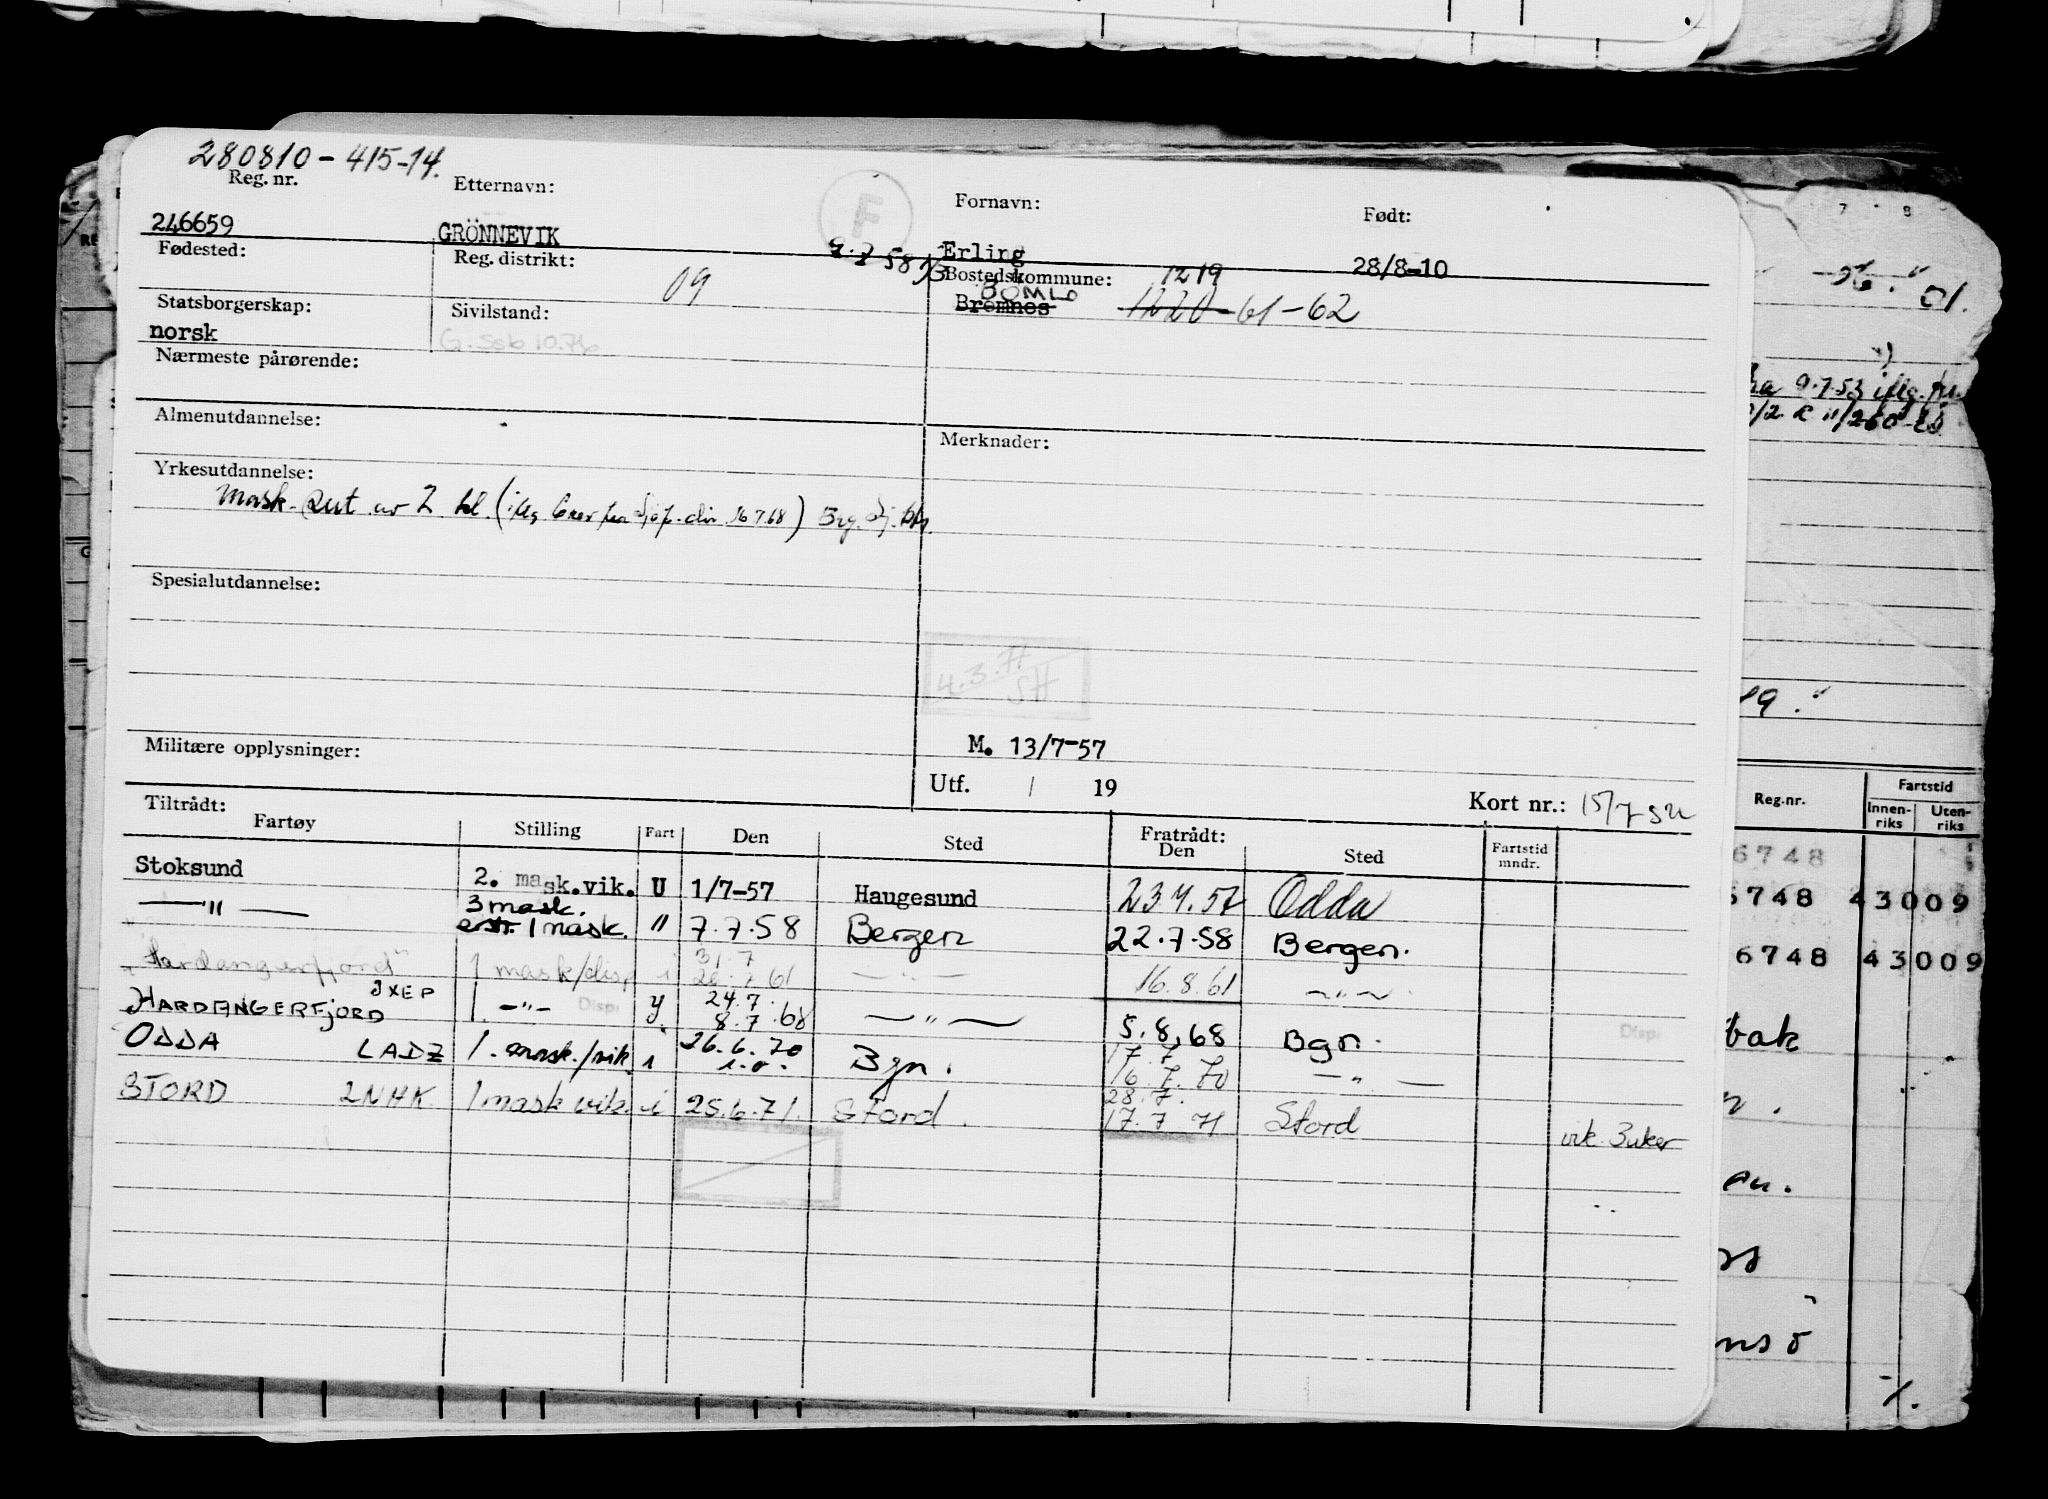 280810-415-14.
Reg. nr. Etternavn: Fornavn: Født:
246659 GRÖNNEVIK F Erling 28/8-10
Fødested: Reg. distrikt: 09 Bostedskommune: 1219
BÖMLO
Bremnes 1220 61-62
Statsborgerskap: Sivilstand:
norsk G. Ssb 10.76
Nærmeste pårørende:
Almenutdannelse: Merknader:
Yrkesutdannelse:
mask. av 2 kl. 16 7 68)
Spesialutdannelse:
4.3.71
SH
Militære opplysninger: M. 13/7-57
Utf. / 19 Kort nr.: 15/7
Tiltrådt: Fratrådt:
Fartøy Stilling Fart Den Sted Den Sted Fartstid mndr.
Stoksund 2. mask.vik. U 1/7-57 Haugesund 23 7. 57 Odda
—"— 3 mask.
erstr. 1 mask. " 7.7.58 Bergen 22.7.58 Bergen.
31.7
"Hardangerfjord" 1 mask/disp i 26.7 61 —"— 16.8.61 —"—
JXEP 24.7.
HARDANGERFJORD 1. —"— Disp. y 8.7.68 —"— 5.8.68 Bgn. Disp.
ODDA LADZ 1. mask./vik. i 26.6.70 Bgn. 17.7
16.7.70 —"—
28.7.
STORD LNHK 1 mask vik. i 25.6.71. Stord. 17.7 71 Stord vik 3 uker
7 8
96." 01.
9.7.53 iflg.
19."
Reg.nr. Fartstid
Innen-riks Uten-riks
6748
6748 43009
6748 43009
bak